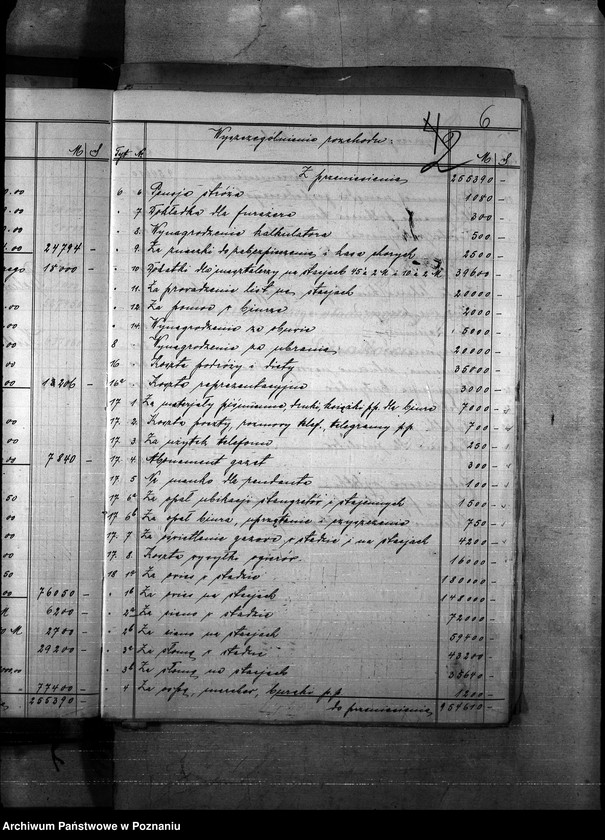 6
42
Wyszczególnienie rozchodu:
M S Tyt. № M S
Z przeniesienia 255390 -
6 6 Pensja stróża 1080 -
" 7. Dokładka dla furażera 300 -
" 8. Wynagrodzenie kalkulatora 500 -
24794 - " 9. Za znaczki do zabezpieczenia i kasa chorych 2500 -
15000 - " 10 Dodatki dla masztalerzy na stacjach 45 a 2 M i 10 a 2 M 39600 -
" 11. Za prowadzenie list na stacjach 20000 -
" 12. Za pomoc w biurze 2000 -
" 14. Wynagrodzenie za obuwie 5000 -
8 Wynagrodzenie za ubranie 20000 -
16 - Koszta podróży i diety 35000 -
12206 - 16a - Koszta reprezentacyjne 3000 -
17. 1 Za materjały piśmienne, druki, książki pp. dla biura 7000 -
17. 2. Koszta poczty, rozmowy telef., telegramy pp. 700 -
17. 3 Za użytek telefonu 250 -
7840 - 17. 4. Abonament gazet 300 -
17. 5 Na manko dla rendanta 100 -
17. 6a Za opał ubikacji stangretów i stajennych 1500 -
17. 6b Za opał biura, uprzątanie i czyszczenie 750 -
17. 7 Za oświetlenie gazowe w stadzie i na stacjach 4200 -
17. 8. Koszta wysyłki ogierów 16000 -
18 1a Za owies w stadzie 180000 -
76050 - " 1b Za owies na stacjach 148000 -
6200 - " 2a Za siano w stadzie 72000 -
2700 - " 2b Za siano na stacjach 59400 -
29200 - " 3a Za słomę w stadzie 43200 -
" 3b Za słomę na stacjach 35640 -
77400 - " 4 Za ospę, marchew, pp. 1200 -
255390 - do przeniesienia 954610 -
Archiwum Państwowe w Poznaniu